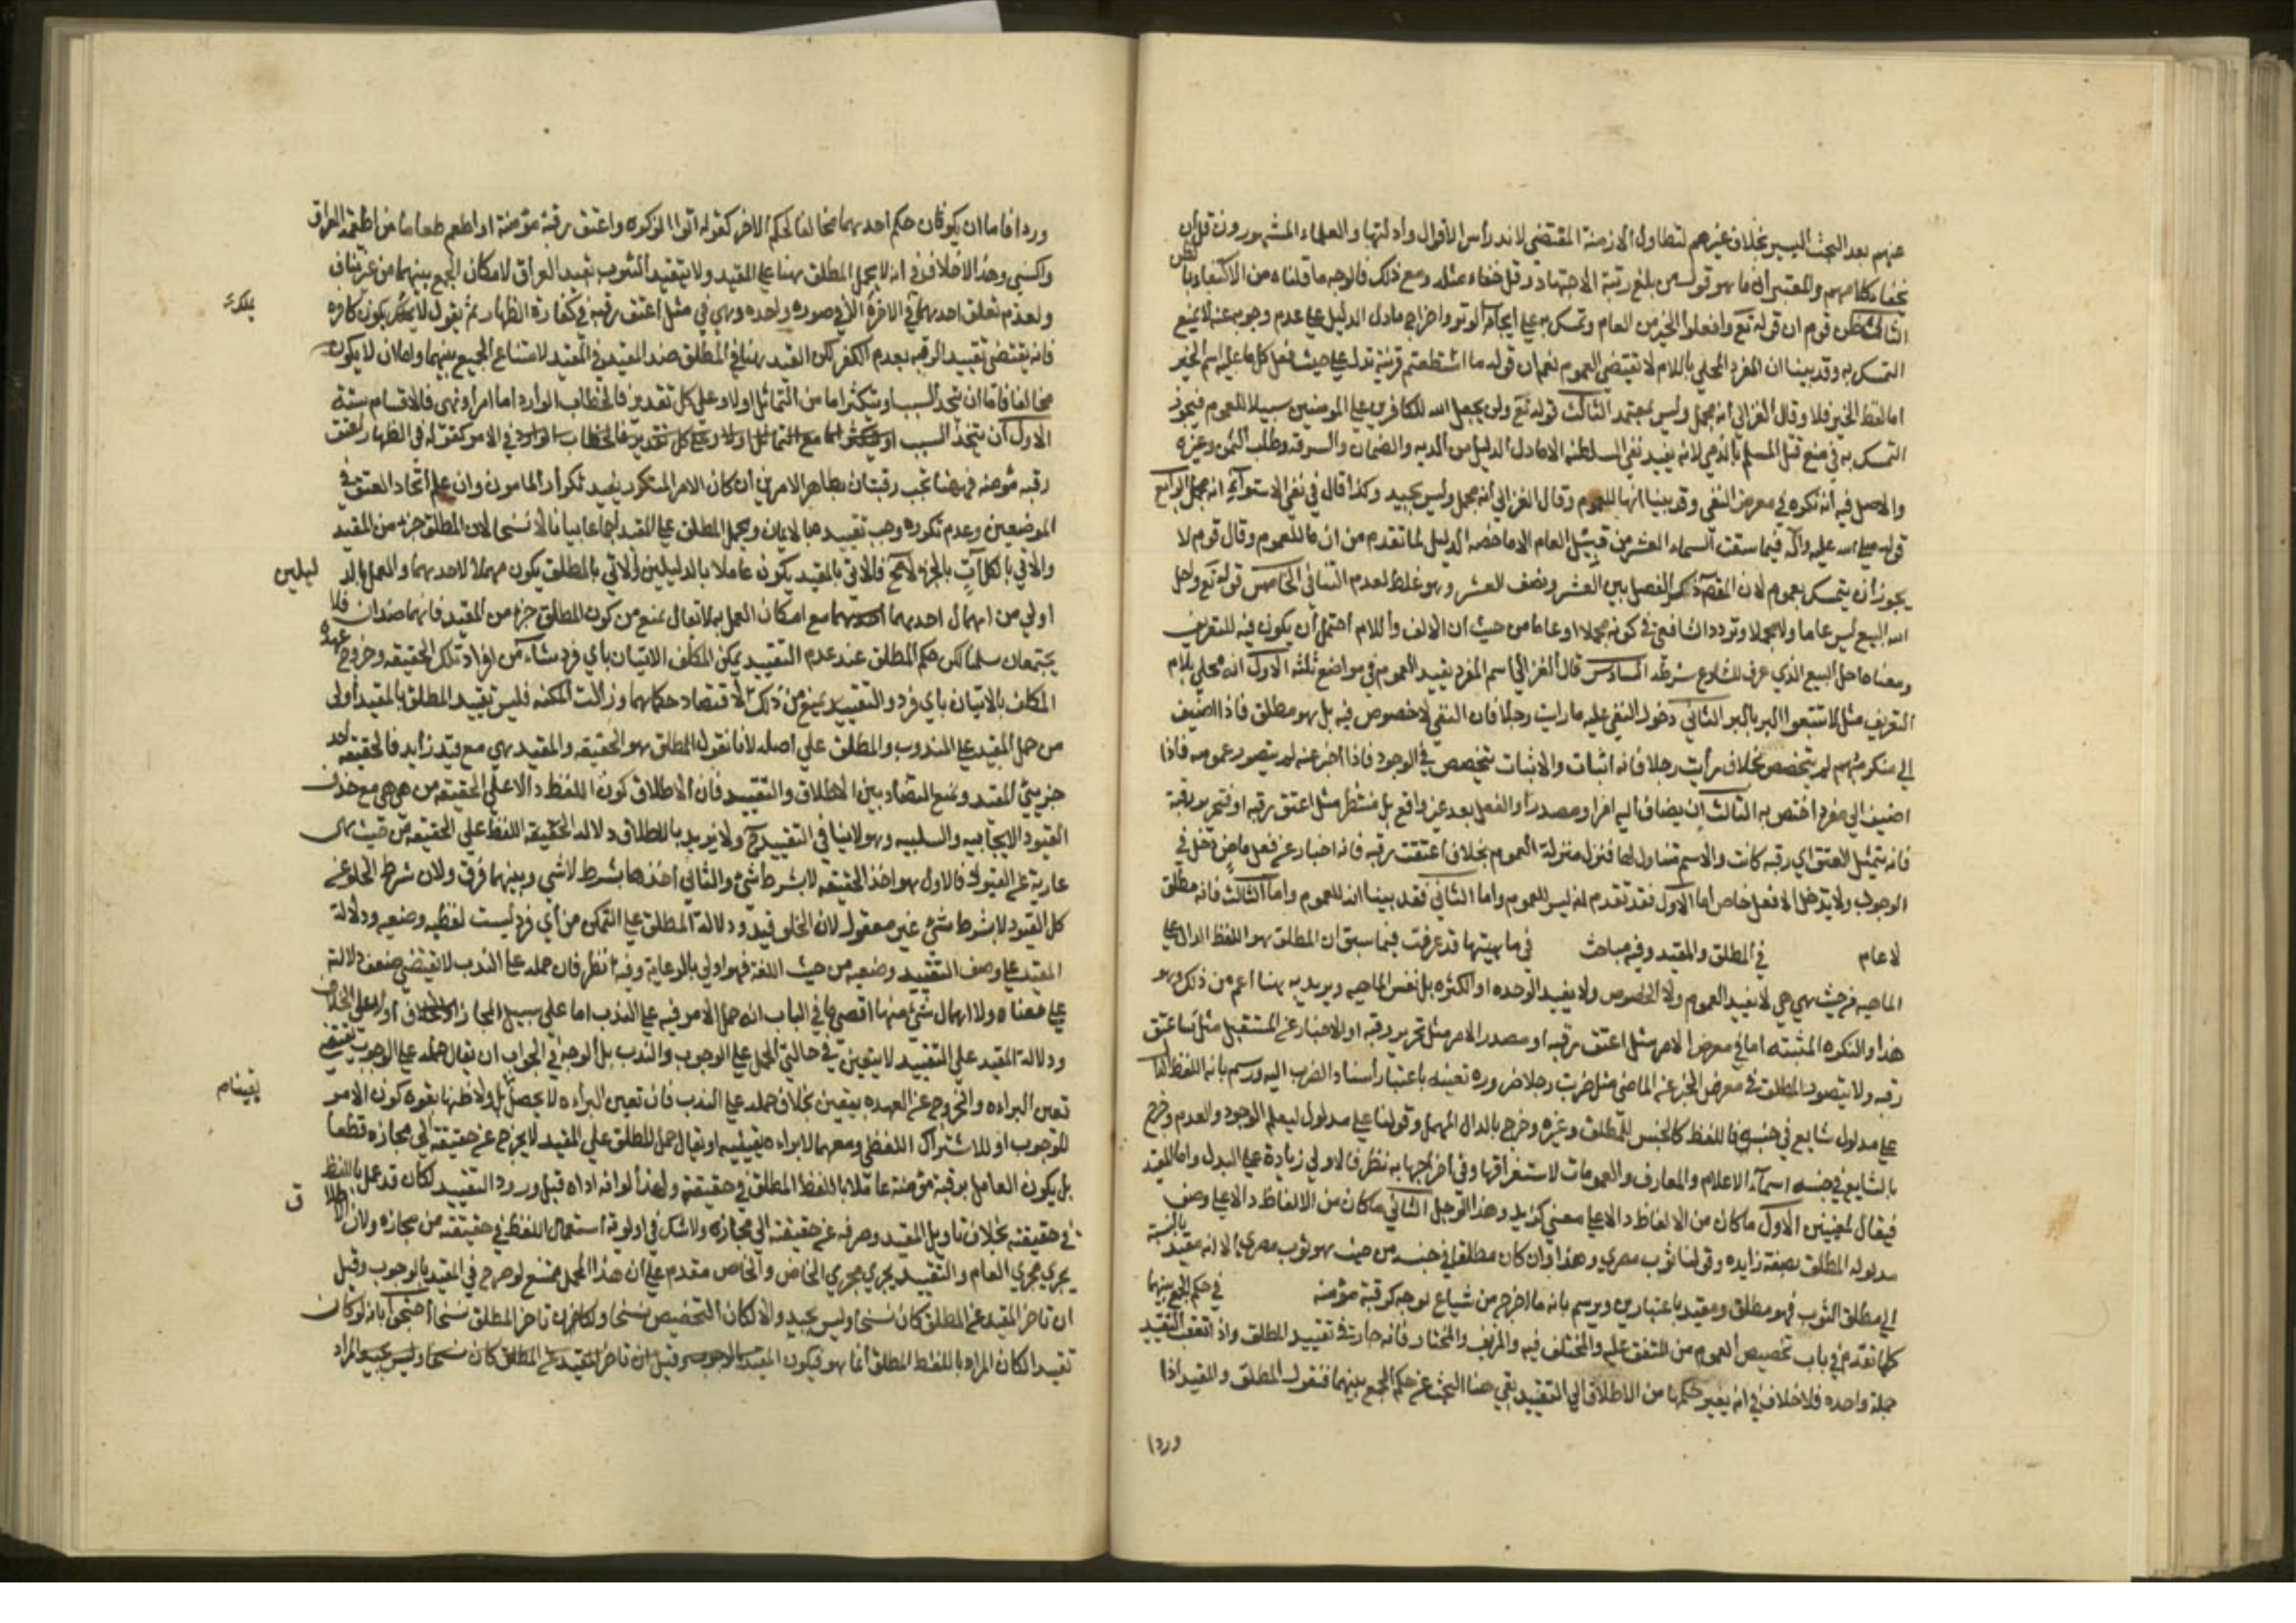 عنهم بعد البحث اليسير بخلاف غيرهم لتطاول الازمنة المقتضى لاندراس الاقوال وادلتها والعلماء المشهورون قل ان
يخفا كلامهم والمعتبر انما هو قول من بلغ رتبة الاجتهاد وقل خفاء مثله ومع ذلك فالوجه ما قلناه من الاكتفاء بالظن
الثالث ظن قوم ان قوله تع وافعلوا الخير من العام وتمسك به على ايجاب الوتر واخراج مادل الدليل على عدم وجوبه عنه لا يمنع
التمسك به وقد بينا ان المفرد المحلي باللام لا تقتضي العموم نعم ان قوله ما استطعتم قرينة تدل على حيث فعل كل ما عليه اسم الخير
اما لفظ الخير فلا وقال الغزالي انه مجمل وليس بمعتمد الثالث قوله تع ولن يجعل الله للكافرين على المومنين سبيلا للعموم فيجوز
التمسك به في منع قتل المسلم بالذمي لانه يفيد نفي السلطنه الا مادل الدليل من الديه والضمان والسرقه وطلب الثمن وغيره
والاصل فيه انه نكره في معرض النفي وقد بينا انها للعموم وقال الغزالي انه مجمل وليس بجيد وكذا قال في نفي الاستوآء انه مجمل الرابع
قوله صلى الله عليه وآله فيما سقت السماء العشر من قبيل العام الا ما خصه الدليل لما تقدم من ان ما للعموم وقال قوم لا
يجوز ان يتمسك بعموم لان المقصد ذكر الفصل بين العشر ونصف العشر وهو غلط لعدم التنافي الخامس قوله تع واحل
الله البيع ليس عاما ولا مجملا وتردد الشافعي في كونه مجملا او عاما من حيث ان الالف واللام احتمل ان يكون فيه للتعريف
ومعناه احل البيع الذي عرف الشارع شرطه السادس قال الغزالي اسم المفرد يفيد العموم في مواضع ثلثه الاول انه محلي بلام
التعريف مثل لا تبيعوا البر بالبر الثاني دخول النفي عليه ما رايت رجلا فان النفي لا خصوص فيه بل هو مطلق فاذا اضيف
الى منكر مبهم لم يتخصص بخلاف رأيت رجلا فانه اثبات والاثبات يتخصص في الوجود فاذا اخبر عنه لم يتصور عمومه فاذا
اضيف الى مفرد اختص به الثالث ان يضاف اليه امر او مصدر والفعل بعد غير واقع بل منتظر مثل اعتق رقبه او فتحرير رقبة
فانه يتمثل العتق اي رقبه كانت والاسم متناول لها فنزل منزلة العموم بخلاف اعتقت رقبه فانه اخبار عن فعل ماض دخل في
الوجود ولا يدخل الا فعل خاص اما الاول فقد تقدم انه ليس للعموم واما الثاني فقد بينا انه للعموم واما الثالث فانه مطلق
لا عام في المطلق والمقيد وفيه مباحث في ماهيتها قد عرفت فيما سبق ان المطلق هو اللفظ الدال على
الماهيه من حيث هي هي لا يفيد العموم ولا الخصوص ولا يفيد الوحده او الكثره بل نفس الماهيه ويريد به هنا اعم من ذلك وهو
هذا والنكره المثبته اما في معرض الامر مثل اعتق رقبه او مصدر الامر مثل تحرير رقبه او الاخبار عن المستقبل مثل ساعتق
رقبه ولا يتصور المطلق في معرض الخبر عن الماضي مثل ضربت رجلا ضرورة تعينه باعتبار اسناد الضرب اليه ورسم بانه اللفظ الدال
على مدلول شايع في جنسه فاللفظ كالجنس للمطلق وغيره وخرج بالدال المهمل وقولنا على مدلول ليعم الوجود والعدم وخرج
بالشايع في جنسه اسمآء الاعلام والمعارف والعمومات لاستغراقها وفي اخراجها به نظر فالاولى زيادة على البدل واما المقيد
فيقال لمعنيين الاول ما كان من الالفاظ دالا على معنى كزيد وهذا الرجل الثاني ما كان من الالفاظ دالا على وصف
مدلوله المطلق بصفة زايده وقولنا ثوب مصري وهذا وان كان مطلقا في جنسه من حيث هو ثوب مصري الا انه مقيد بالنسبة
الى مطلق الثوب فهو مطلق ومقيد باعتبارين ويرسم بانه ما اخرج من شياع لوجه كرقبة مؤمنه في حكم الجمع بينهما
كلما تقدم في باب تخصيص العموم من المتفق عليه والمختلف فيه والمزيف والمختار فانه جار في تقييد المطلق واذ اتعقب التقييد
جملة واحده فلا خلاف في انه يغير حكمها من الاطلاق الى التقييد بقي هنا البحث عن حكم الجمع بينهما فنقول المطلق والمقيد اذا
وردا
وردا فاما ان يكون حكم احدهما مخالفا لحكم الاخر كقوله اتوا الزكوه واعتق رقبة مؤمنة او اطعم طعاما من اطعمة العراق
واكسي وهذا لا خلاف في انه لا يحمل المطلق هنا على المقيد ولا يتقيد الثوب بقيد العراق لامكان الجمع بينهما من غير تناف
ولعدم تعلق احدهما في الاخر الا في صورة واحده وهي في مثل اعتق رقبه في كفارة الظهار ثم يقول لا يكون كافره
يملك
فانه يقتضي تقييد الرقبه بعدم الكفر لكن القيد هنا في المطلق ضد المقيد في المقيد لامتناع الجمع بينهما واما ان لا يكون
مخالفا فاما ان يتحد السبب او يتكثر اما من التماثل اولا وعلى كل تقدير فالخطاب الوارد اما امر او نهي فالاقسام ستة
الاول ان يتحد السبب او يتكثر اما مع التماثل اولا وعلى كل تقدير فالخطاب الوارد في الامر كقوله في الظهار اعتق
رقبه مؤمنه فهنا تجب رقبتان بظاهر الامرين ان كان الامر المتكرر يفيد تكرار المامور وان علم اتحاد العتق في
الموضعين وعدم تكرره وجب تقييدها بالايمان ويحمل المطلق على المقيد اجماعا بيانا لا نسخا لان المطلق جزء من المقيد
والاتي بالكل آت بالجزء لا مح فالاتي بالمقيد يكون عاملا بالدليلين والاتي بالمطلق يكون مهملا لاحدهما والعمل بالد
ليلين
اولى من اهمال احدهما مع امكان العمل بهما لا يقال يمنع من كون المطلق جزء من المقيد فانهما ضدان فلا
يجتمعان سلمنا لكن حكم المطلق عند عدم التقييد يمكن المكلف الاتيان باي فرد شاء من افراد تلك الحقيقه وخروج عهدة
المكلف بالاتيان باي فرد والتقييد يمنع من ذلك لاقتضاد حكاهما وزالت المكنه فليس تقييد المطلق بالمقيد اولى
من حمل المقيد على المندوب والمطلق على اصله لانا نقول المطلق هو الحقيقه والمقيد هي مع قيد زايد فالحقيقه احد
جزيئ المقيد ونمنع التضاد بين الاطلاق والتقييد فان الاطلاق كون اللفظ دالا على الحقيقه من هي هي مع حذف
القيود الايجابيه والسلبيه وهو لا ينافي التقييد ولا نريد بالاطلاق دلالة الحقيقه اللفظ على الحقيقه من حيث هي
عارية عن القيود فالاول هو اخذ الحقيقه لا بشرط شئ والثاني اخذها بشرط لا شي وبينهما فرق ولان شرط الخلو عن
كل القيود لا بشرط شئ غير معقول لان الخلو قيد ودلالة المطلق على التمكن من أي فرد ليست لفظيه وضعيه ودلالة
المقيد على وصف التقييد وضعيه من حيث اللغة فهو اولى بالرعاية وفيه نظر فان حمله على الندب لا يقتضي ضعف دلالته
على معناه ولا اهمال شئ منها اقصى ما في الباب انه حمل الامر فيه على الندب اما على سبيل المجاز او على الخلاف
ودلالة المقيد على التقييد لا يتعين في حالتي الحمل على الوجوب والندب بل الوجه في الجواب ان يقال حمله على الوجوب يقتضي
تعين البراءه والخروج عن العهده بيقين بخلاف حمله على الندب فان تعين البراءه لا يحصل بل ولا ظنها بقوة كون الامر
يقينا م
للوجوب او للاشتراك اللفظي ومعهما لا براءه يقينيه او يقال حمل المطلق على المقيد لا يخرج عن حقيقة الى مجازه قطعا
بل يكون العامل برقبة مؤمنة عاملا باللفظ المطلق في حقيقته ولهذا لو انه اداه قبل ورود التقييد لكان قد عمل باللفظ
ق
في حقيقته بخلاف تاويل المقيد وصرفه عن حقيقته الى مجازه ولا شك في اولوية استعمال اللفظ في حقيقته من مجازه ولان
يجري مجرى العام والتقييد يجري مجرى الخاص والخاص مقدم على ان هذا الحمل ممتنع لو صرح في المقيد بالوجوب وقيل
ان تاخر المقيد عن المطلق كان نسخا وليس بجيد والا لكان التخصيص نسخا ولكان تاخر المطلق نسخا احتجوا بانه لو كان
تقييدا لكان المراد باللفظ المطلق انما هو فيكون المقيد وقيل ان تاخر المقيد عن المطلق كان نسخا وليس بجيد المراد